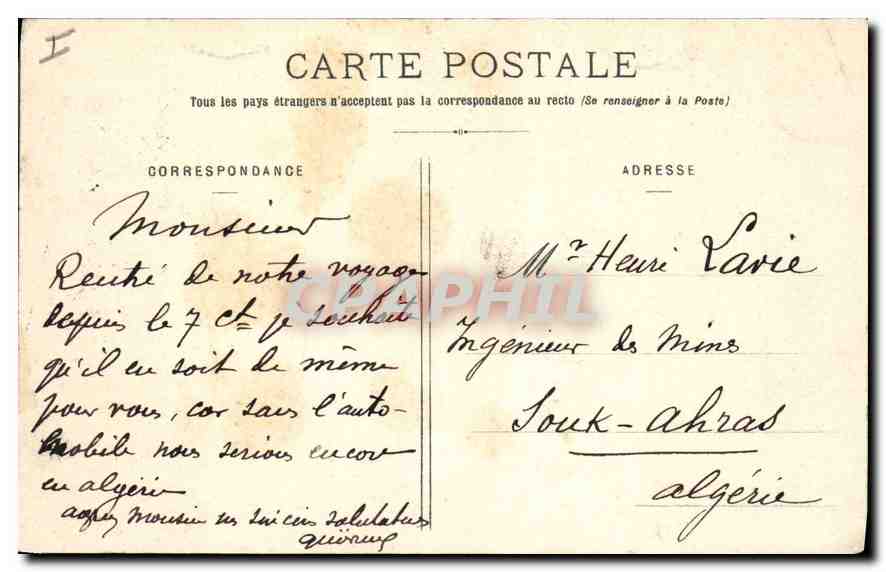 I
CARTE POSTALE
Tous les pays étrangers n'acceptent pas la correspondance au recto (Se renseigner à la Poste)
CORRESPONDANCE
Monsieur
Rentré de notre voyage
depuis le 7 ct je souhaite
qu'il en soit de même
pour vous, car sans l'auto-
mobile nous serions encore
en algérie
agréez Monsieur mes sincères salutations
ADRESSE
Mr Henri Lavie
Ingénieur des Mines
Souk-Ahras
algérie
CPAPHIL